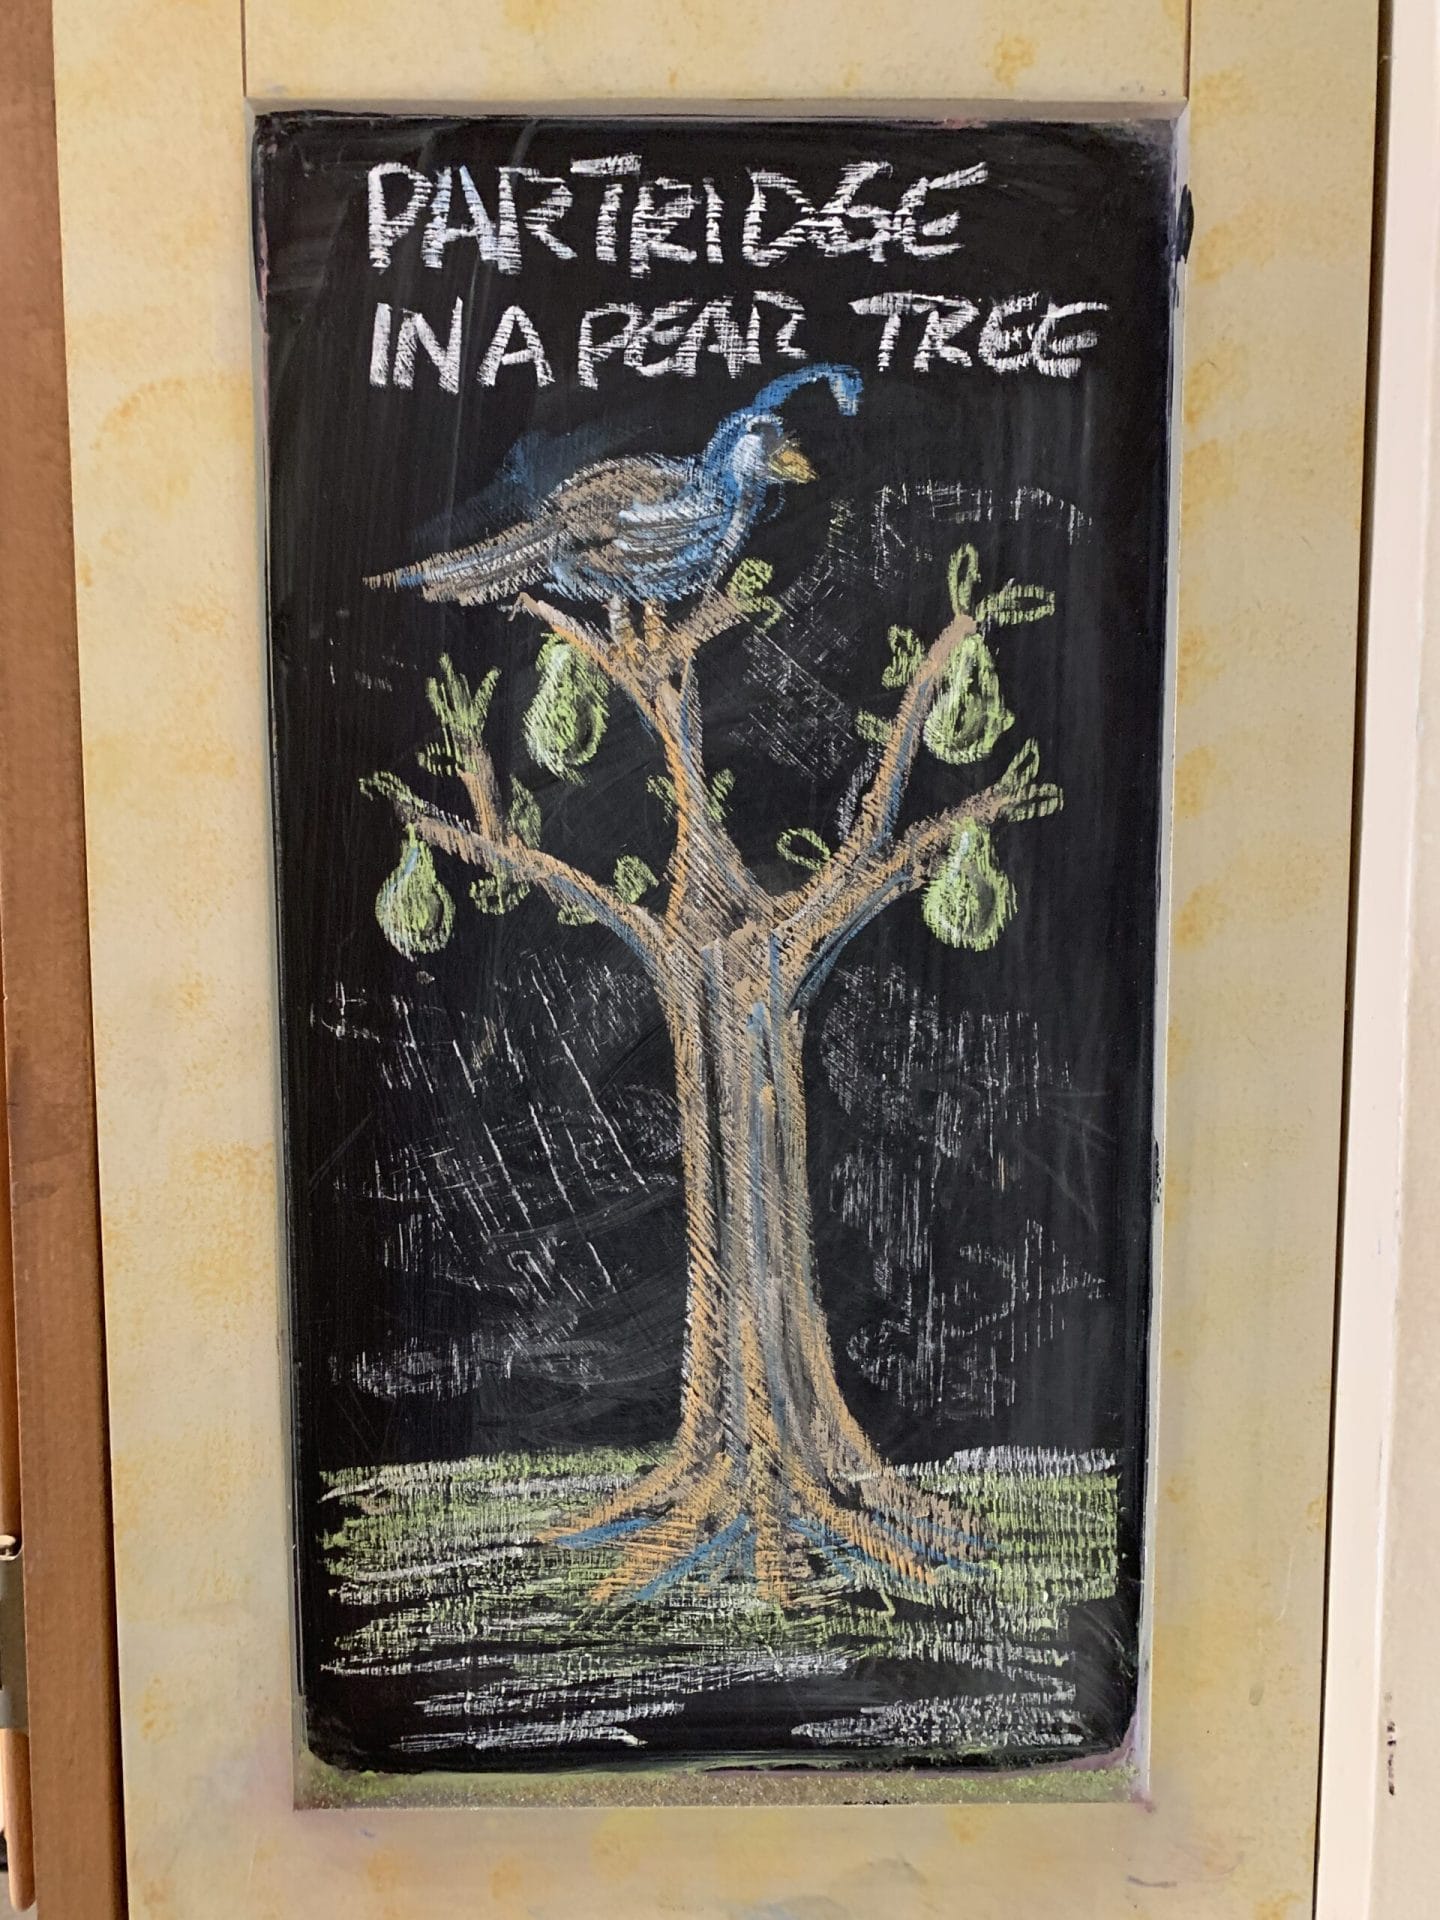 PARTRIDGE
IN A PEAR TREE